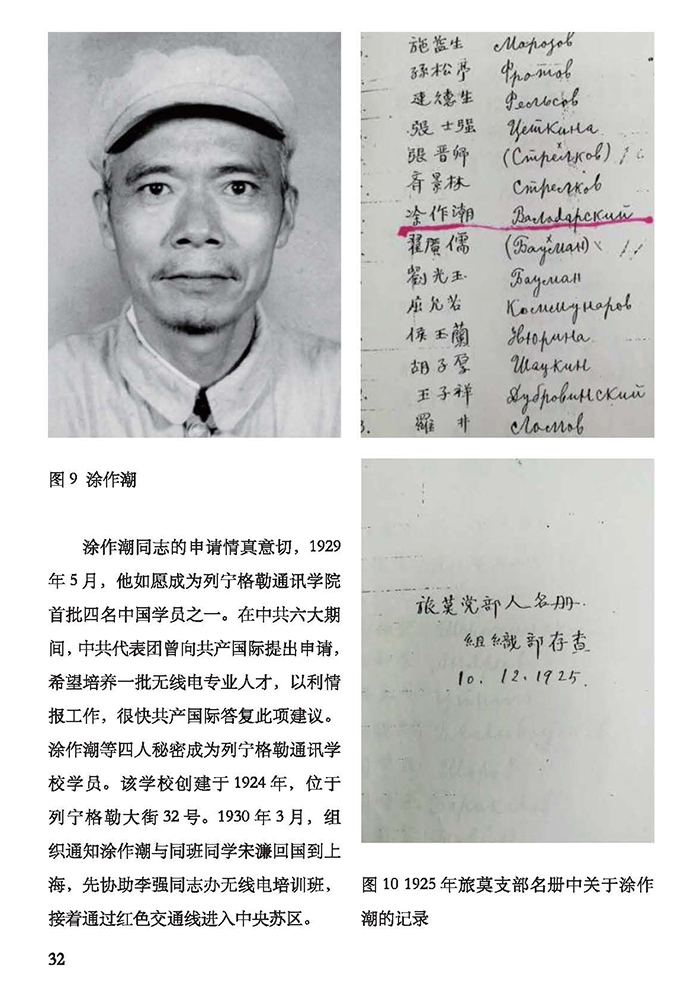 施益生 Марозов
孫松亭 Фротов
連德生 Фельсов
張士强 Цеткина
張晋卿 (Стрелков)
齊景林 Стрелков
涂作潮 Валодарский
翟廣儒 (Бауман)
劉光玉 Бауман
屈允若 Коммунаров
侯玉蘭 Нюрина
胡子厚 Шаукин
王子祥 Дубровинский
羅井 Ломов
图9 涂作潮
涂作潮同志的申请情真意切，1929
年5月，他如愿成为列宁格勒通讯学院
首批四名中国学员之一。在中共六大期
间，中共代表团曾向共产国际提出申请，
希望培养一批无线电专业人才，以利情
报工作，很快共产国际答复此项建议。
涂作潮等四人秘密成为列宁格勒通讯学
校学员。该学校创建于1924年，位于
列宁格勒大街32号。1930年3月，组
织通知涂作潮与同班同学宋濂回国到上
海，先协助李强同志办无线电培训班，
接着通过红色交通线进入中央苏区。
旅莫党部人名册.
組織部存查
10.12.1925.
图10 1925年旅莫支部名册中关于涂作
潮的记录
32